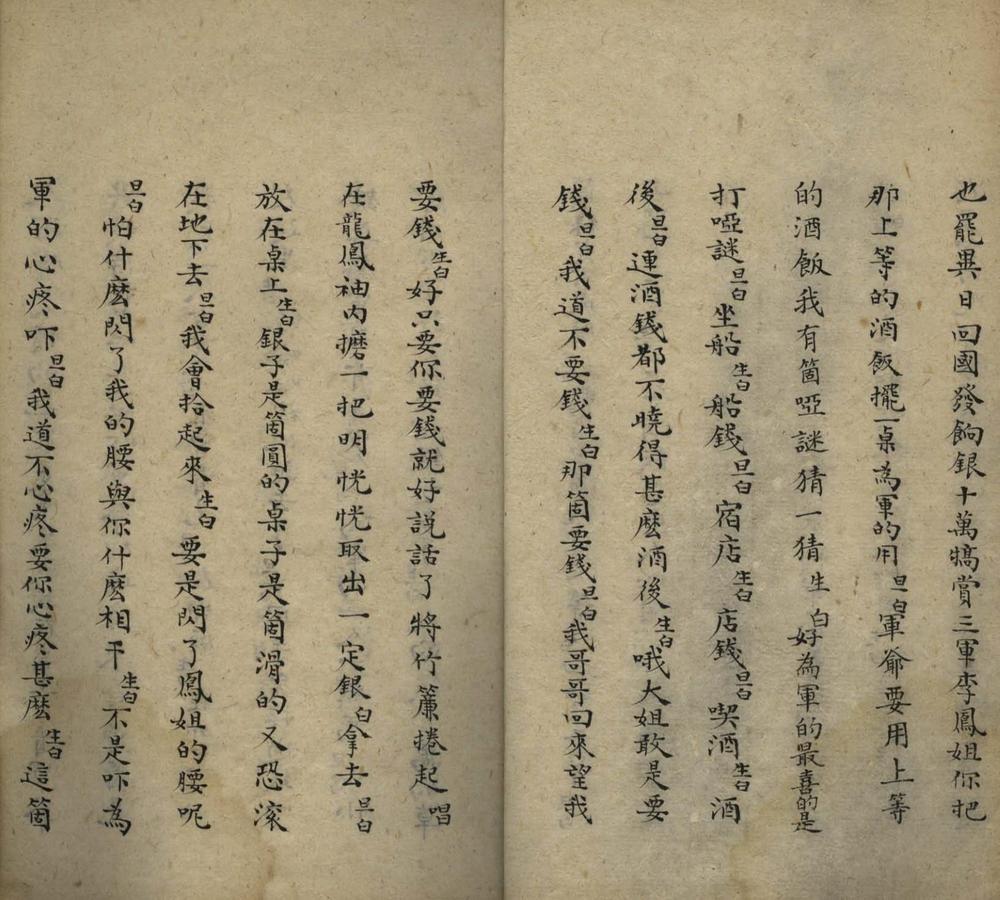 也罷異日回國發餉銀十萬犒賞三軍李鳳姐你把
那上等的酒飯擺一桌為軍的用旦白軍爺要用上等
的酒飯我有箇啞謎猜一猜生白好為軍的最喜的是
打啞謎旦白坐船生白船錢旦白宿店生白店錢旦白喫酒生白酒
後旦白連酒錢都不曉得甚麽酒後生白哦大姐敢是要
錢旦白我道不要錢生白那箇要錢旦白我哥哥回來望我
要錢生白好只要你要錢就好説話了將竹簾捲起唱
在龍鳳袖內摭一把明恍恍取出一定銀白拿去旦白
放在桌上生白銀子是箇圓的桌子是箇滑的又恐滚
在地下去旦白我會拾起來生白要是閃了鳳姐的腰呢
旦白怕什麽閃了我的腰與你什麽相干生白不是吓為
軍的心疼吓旦白我道不心疼要你心疼甚麽生白這箇